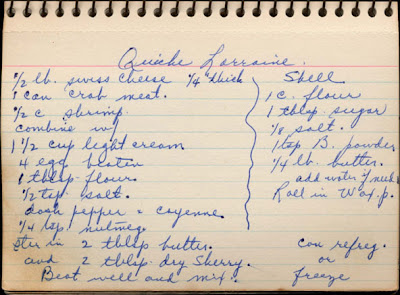 Quiche Lorraine
1/2 lb. swiss cheese 1/4 thick
1 can crab meat.
1/2 c. shrimp
combine w/
1 1/2 cup light cream
4 egg beatin
1 tblsp flour.
1/2 tsp. salt.
dash pepper + cayenne
1/4 tsp. nutmeg.
ster in 2 tblsp butter.
and 2 tblsp dry Sherry.
Beat well and mix.
Shell
1 c. flour
1 tblsp sugar
1/8 salt.
1 tsp B. powder
1/4 lb. butter.
add water if need
Roll in Wax p.
can refreg.
or
freeze